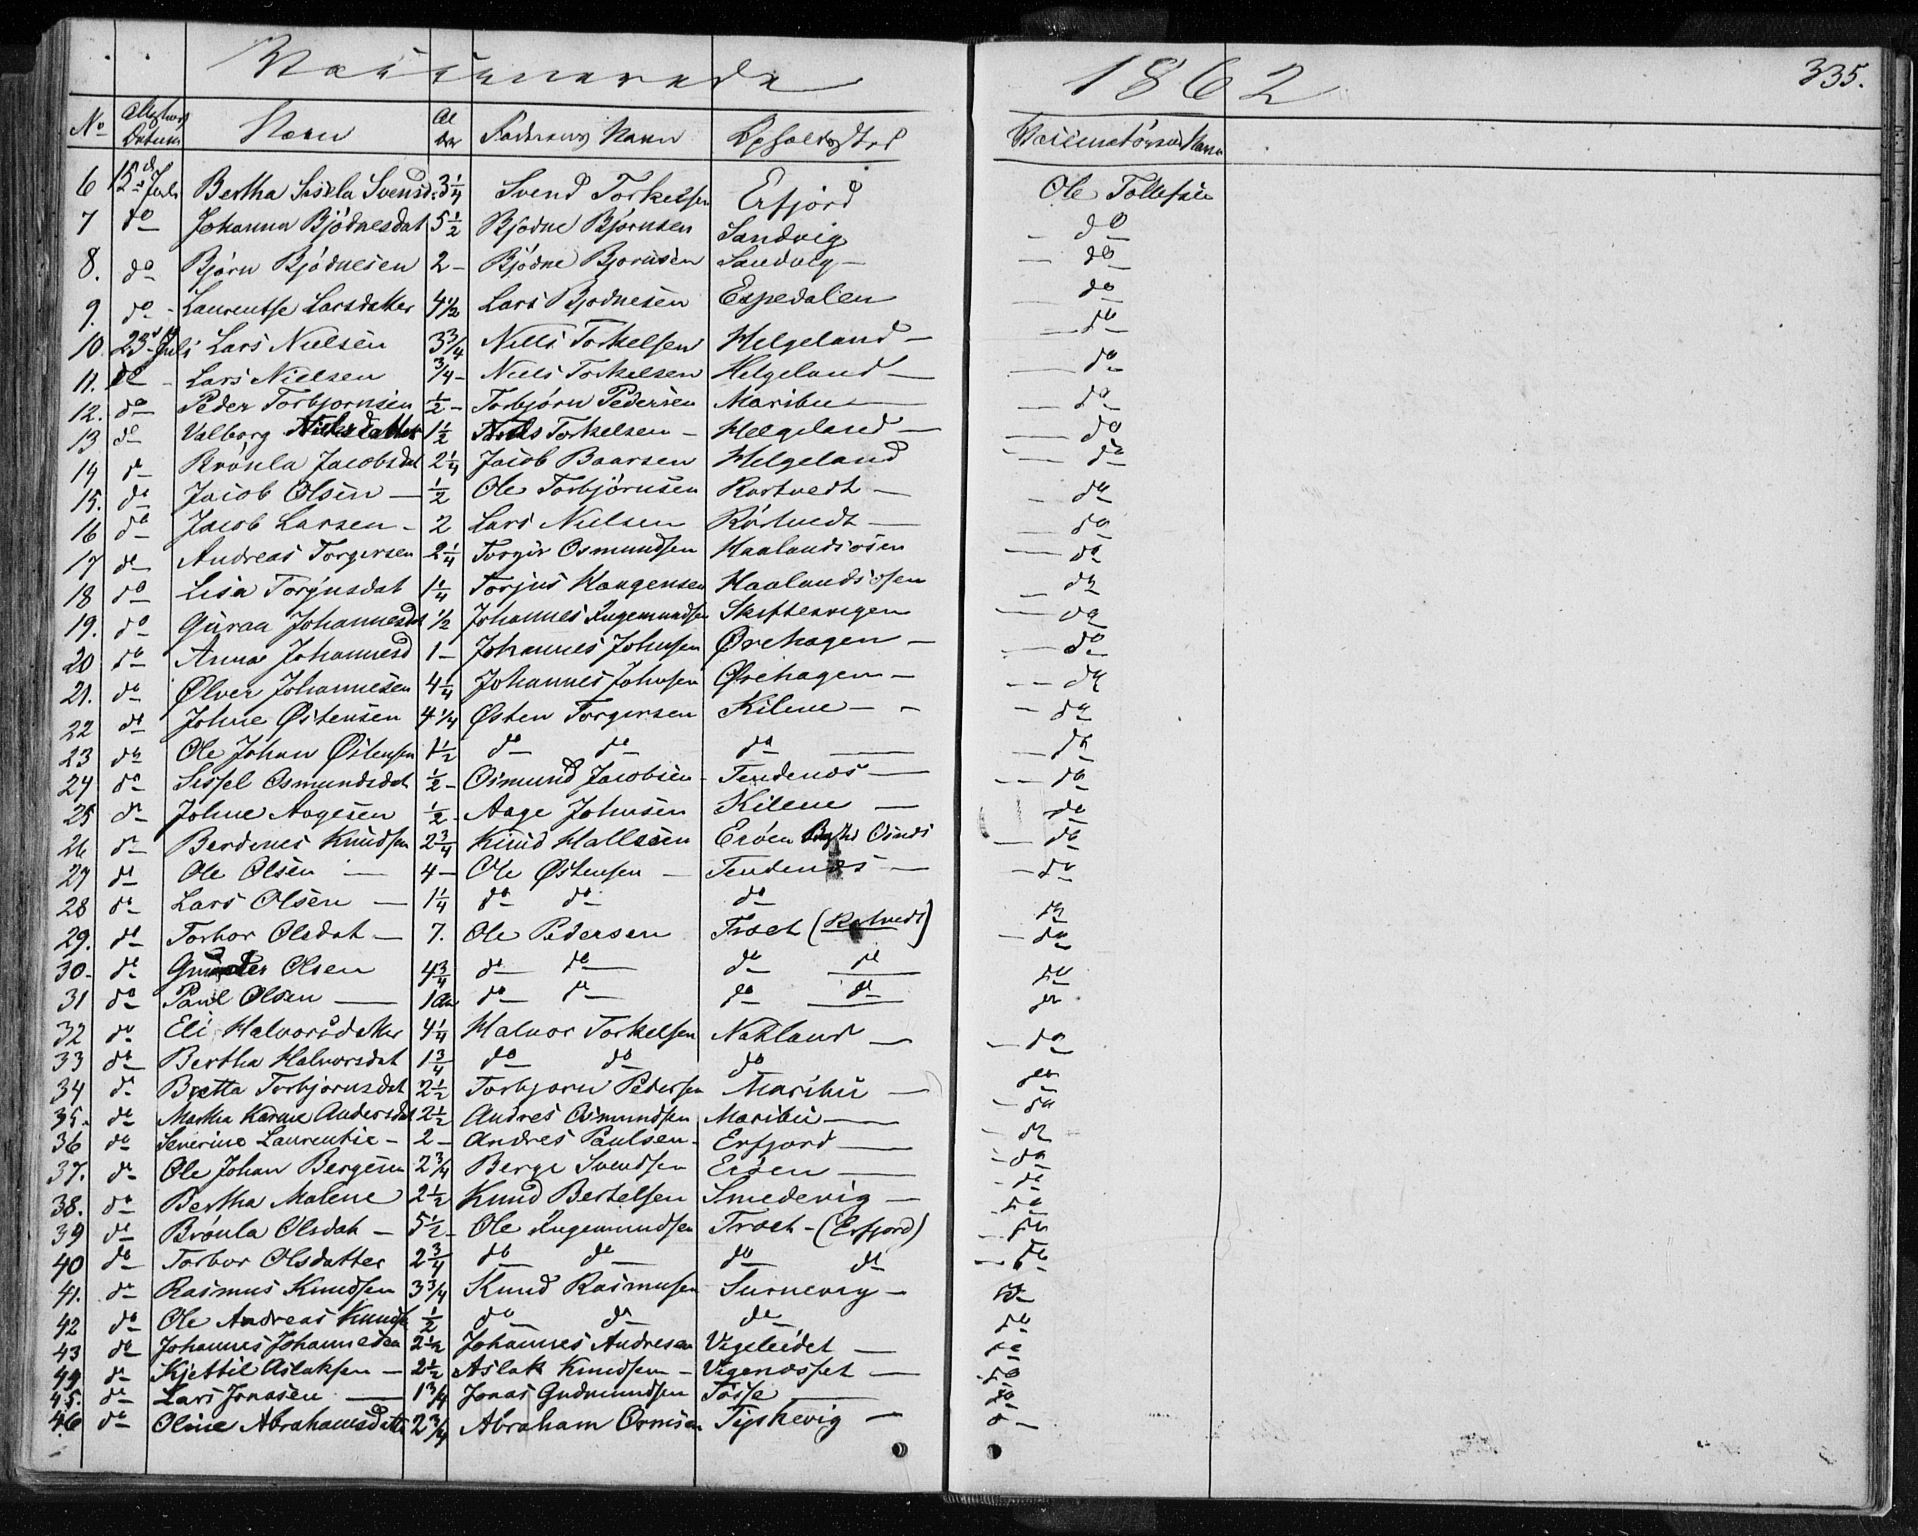 Vaccinerede 1862 335.
No Datum Navn Al der Faderens Navn Opholdssted Vaccinatörens Navn
6 15de Juli Bertha Sisela Svensd. 3 1/4 Svend Torkelsen Erfjord Ole Tollefsen
7 do Johanna Bjödnesdat 5 1/2 Bjödne Bjørnsen Sandvig - do
8. do Bjørn Bjödnesen 2 - Bjödne Bjørnsen Sandvig - do
9. do - Laurentse Larsdatter 4 1/2 Lars Bjødnesen Espedalen do
10. 23de Juli Lars Nielsen 3 3/4 Niels Torkelsen Helgeland - do
11. do - Lars Nielsen 3/4 - Niels Torkelsen Helgeland - do
12. do Peder Torbjornsen 1/2 - Torbjørn Pedersen Maribu - do
13 do Valborg Nielsdatter 1 1/2 Niels Torkelsen - Helgeland - do
14 do Brönla Jacobsdat 2 1/4 Jacob Baarsen Helgeland do
15. do Jacob Olsen - 1/2 Ole Torbjørnsen Rørtvedt - do
16 do Jacob Larsen - 2 Lars Nielsen Rörtvedt - do
17 do Andreas Torgersen 2 1/4 Torger Osmundsen Haalandsosen do
18 do Lisa Torjusdat 1 1/4 Torjus Haagensen Haalandsosen do
19. do Guraa Johannesdat 1/2 Johannes Ingemundsen Skiftesvigen do
20 do Anna Johannesd 1 - Johannes Johnsen Ørehagen - do
21. do Ølver Johannesen 4 1/4 Johannes Johnsen Ørehagen - do
22 do Johne Østensen 4 1/4 Østen Torgersen Kilene - - do
23 do Ole Johan Østensen 1 1/2 do do do - do
24 do Sissel Osmundsdat 1/2 - Osmund Jacobsen - Tendenes - do
25 do Johne Aagesen 1/2 - Aage Johnsen Kilene - do
26 do Berdines Knudsen 2 3/4 Knud Hallesen Eröen do
27 do Ole Olsen - 4 - Ole Østensen - Tendenes - do
28 do Lars Olsen - 1 1/4 do do do do
29. do Torbor Olsdat - 7. Ole Pedersen Troet (Rørtvedt) - do
30 - do Olsen 4 3/4 do do do do do
31 do Paul Olsen - 1 do do do do do
32 do Eli Halvorsdatter 4 1/4 Halvor Torkelsen Nahland - do
33 do Bertha Halvorsdat 1 3/4 do do do
34 do Bretta Torbjornsdat 2 1/2 Torbjorn Pedersen Maribu - do
35. do Martha Karine Andersdat 2 1/2 Andres Osmundsen Maribu - do
36 do Severine Laurentie - 2 - Andres Paulsen - Erfjord - do
37. do Ole Johan Bergesen 2 3/4 Berge Svendsen Eröen - do
38. do Bertha Malene 2 1/2 Knud Bertelsen Smedevig - do
39 do Brönla Olsdat - 5 1/2 - Ole Ingemundsen Troet - (Erfjord) do
40 do Torbor Olsdatter 2 3/4 do do do do do
41. do Rasmus Knudsen 3 3/4 Knud Rasmusen Turnevig - do
42 do Ole Andreas Knudsen 1/2 do do do do
43 do Johannes Johannesen 2 1/2 Johannes Andresen Vigeleidet - do
44 do Kjettil Aslaksen - 2 1/2 Aslak Knudsen - Vigenosset - do
45. do Lars Jonasen - 1 3/4 Jonas Gudmundsen Tøsse - do
46 do Oline Abrahamsdatter 2 3/4 Abraham Ormsen Tyskevig - do